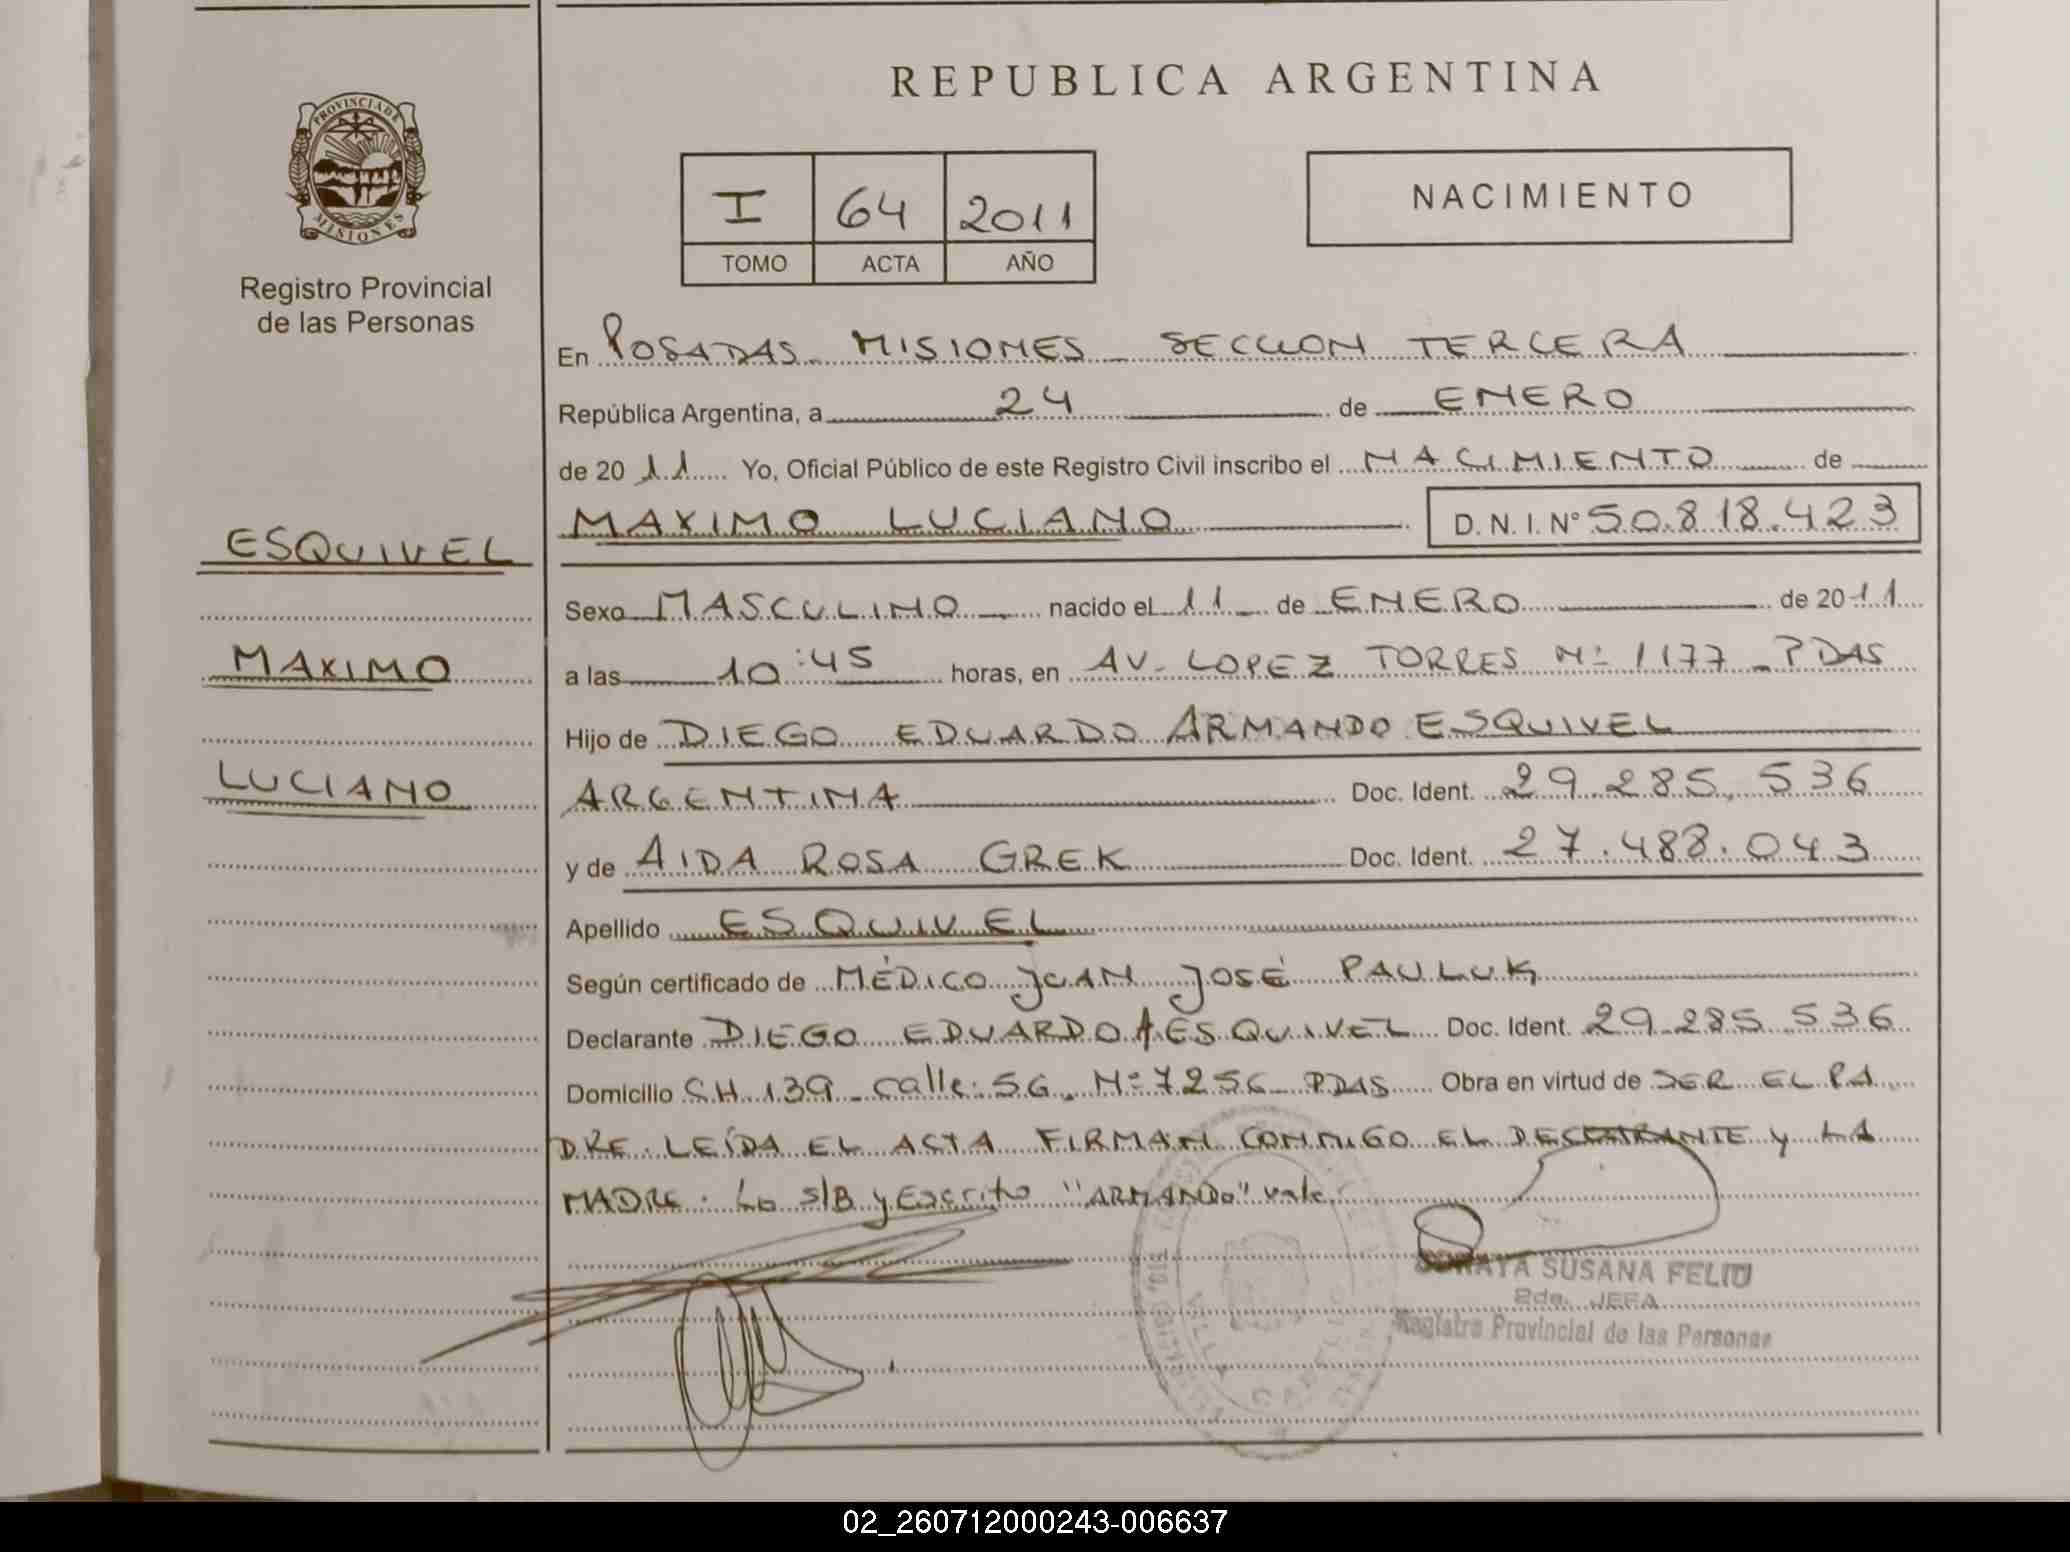 REPUBLICA ARGENTINA
PROVINCIA DE MISIONES
Registro Provincial
de las Personas
I 64 2011
TOMO ACTA AÑO
NACIMIENTO
En POSADAS MISIONES SECCION TERCERA
República Argentina, a 24 de ENERO
de 2011 Yo, Oficial Público de este Registro Civil inscribo el NACIMIENTO de
MAXIMO LUCIANO D. N. I. N° 50.818.423
ESQUIVEL
MAXIMO
LUCIANO
Sexo MASCULINO nacido el 11 de ENERO de 2011
a las 10:45 horas, en AV. LOPEZ TORRES Nº 1177 - PDAS
Hijo de DIEGO EDUARDO ARMANDO ESQUIVEL
ARGENTINA Doc. Ident. 29.285.536
y de AIDA ROSA GREK Doc. Ident. 27.488.043
Apellido ESQUIVEL
Según certificado de MÉDICO JUAN JOSÉ PAULUK
Declarante DIEGO EDUARDO A ESQUIVEL Doc. Ident. 29.285.536
Domicilio CH 139 - calle: 56 Nº 7256 PDAS Obra en virtud de SER EL PA
DRE. LEÍDA EL ACTA FIRMAN CONMIGO EL DECLARANTE y LA
MADRE. Lo S/B y Escrito "ARMANDO" vale.
SORAYA SUSANA FELIU
2da. JEFA
Registro Provincial de las Personas
02_260712000243-006637